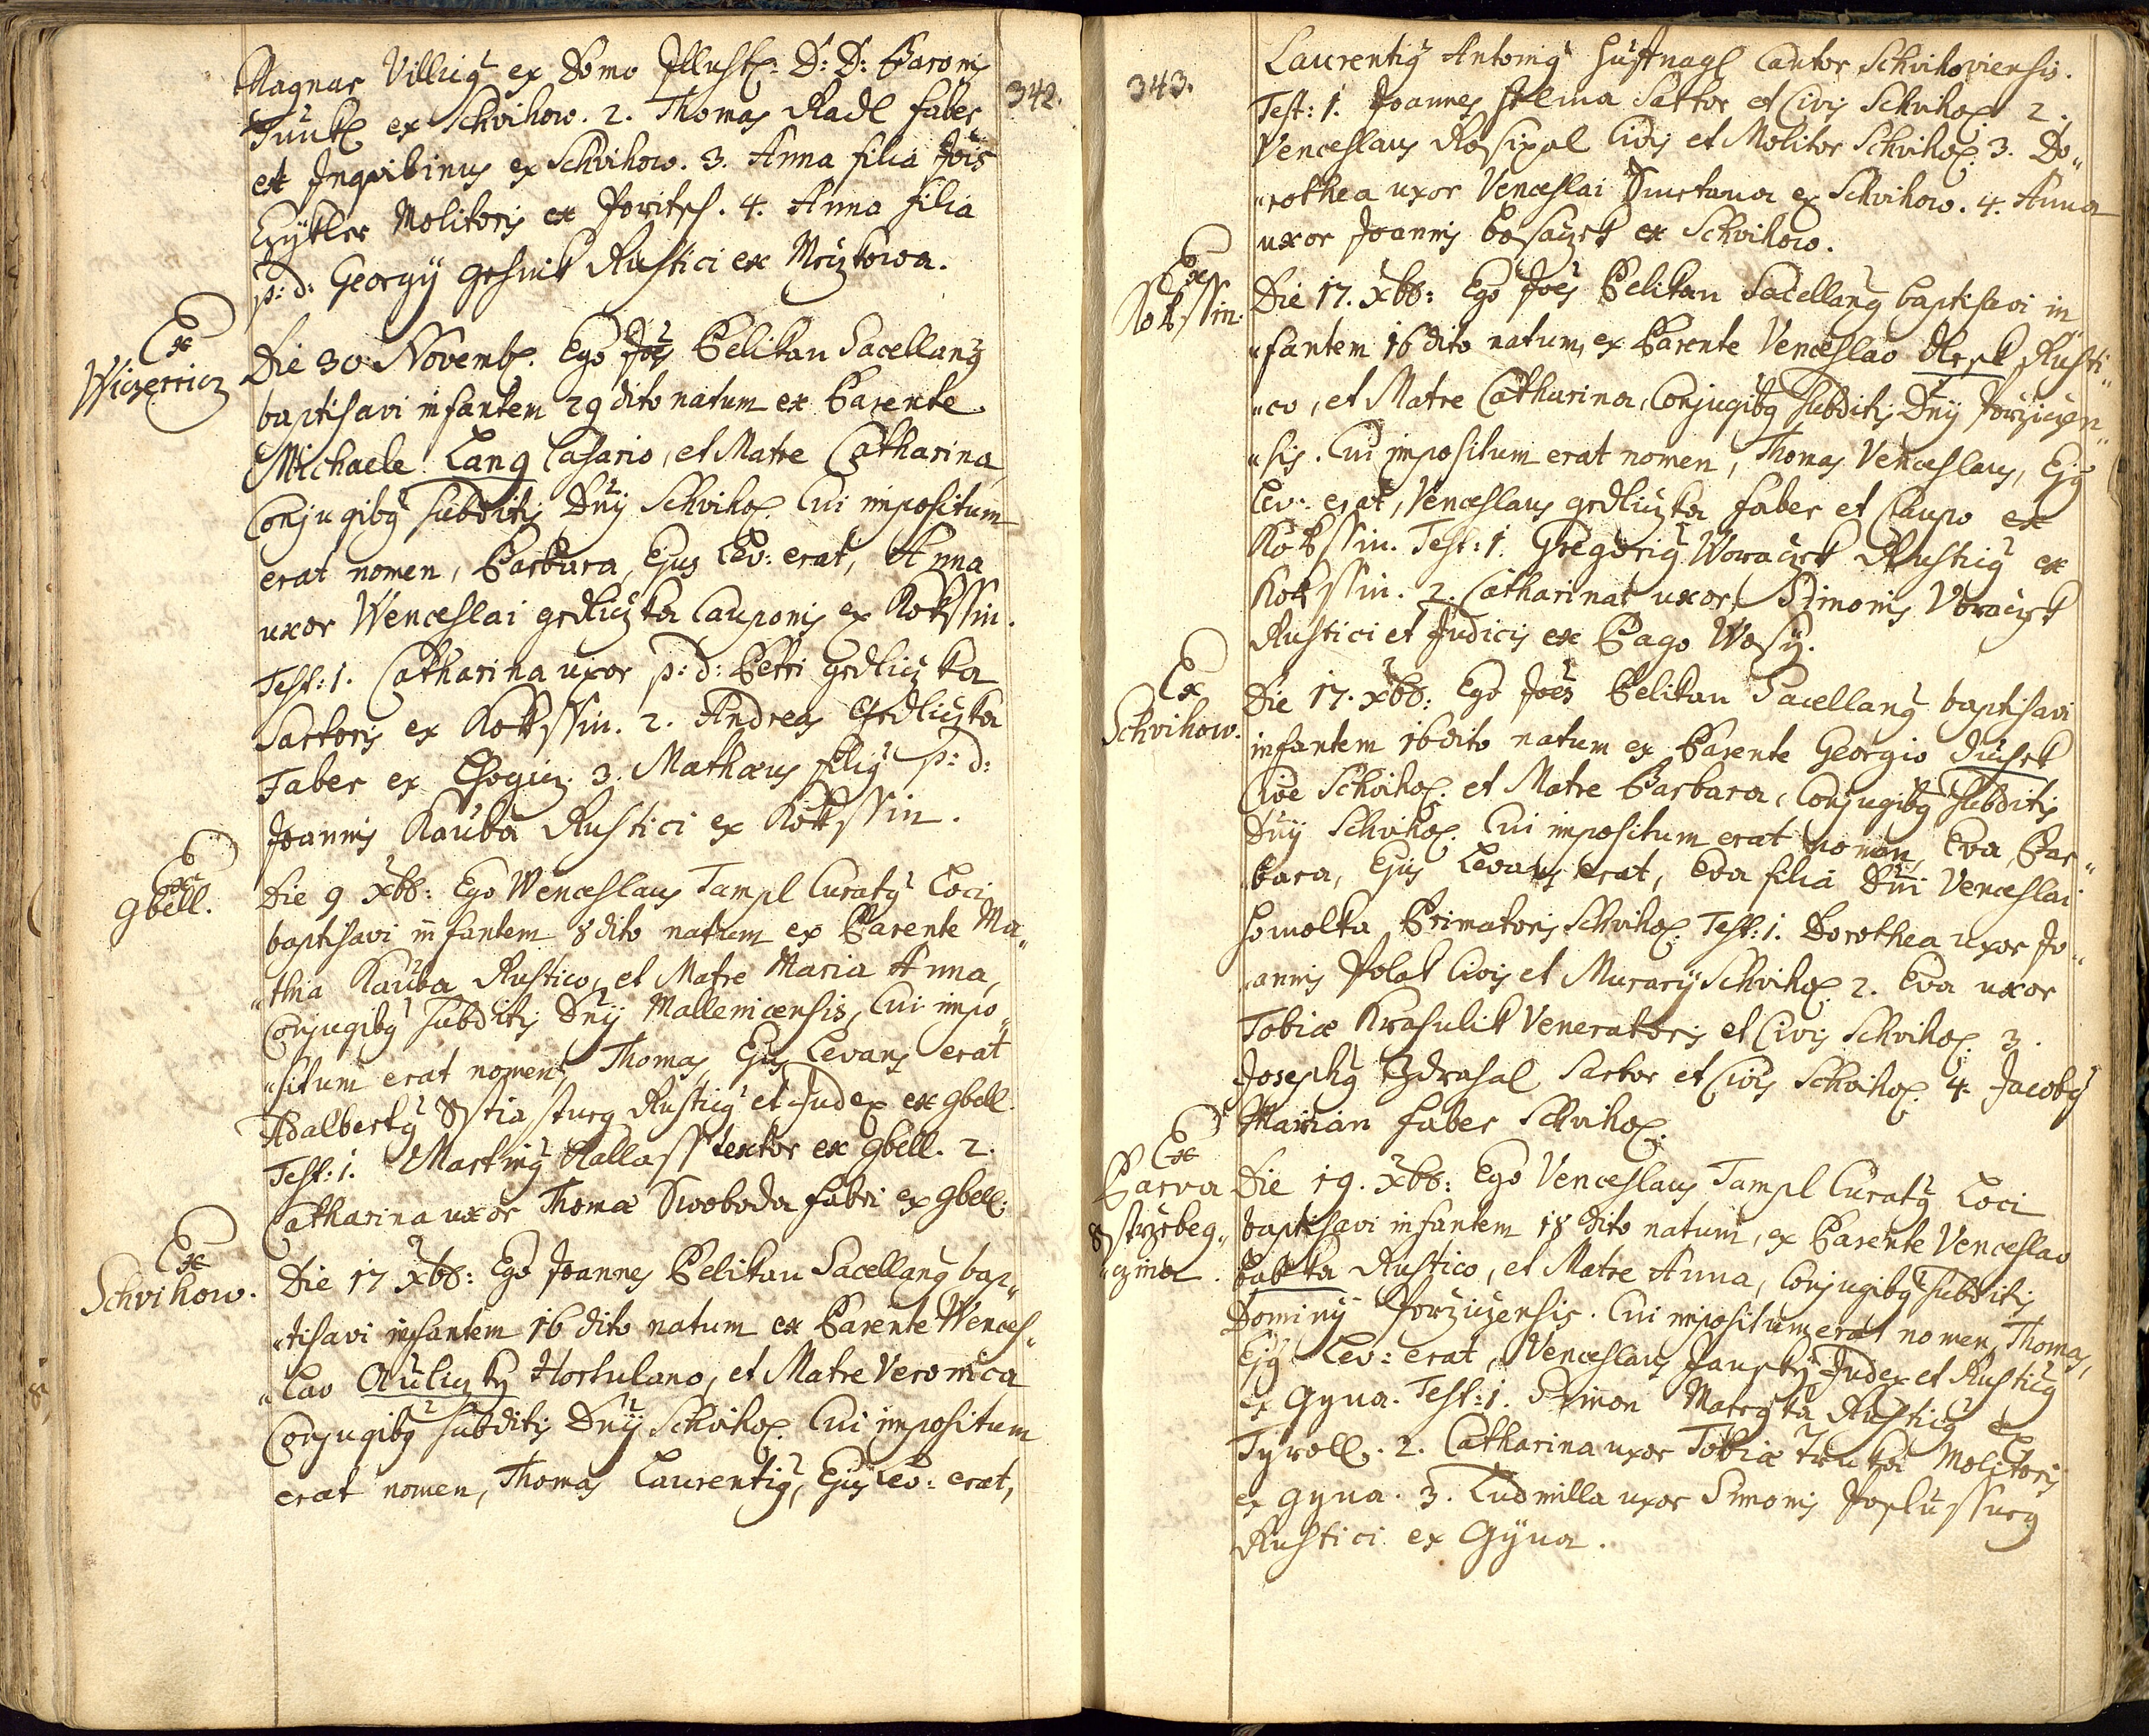 342.
Magnar Villicq ex Domo Illustx: D: D: Baronis
ex Schvihow. 2. Thomas Radl faber
et Inqvilinus ex Schvihow. 3. Anna filia Jois
Molitoris ex Poritsch. 4. Anna filia
p: d: Georgÿ Rustici ex
Ex
Wiczerricz
Die 30 Novembx. Ego Joes Pelikan Sacellanq
baptisavi infantem 29 dito natum ex Parente
Michaele Lang Casario, et Matre Catharina
Conjugibq Subditis Dnÿ Schvihox. Cui impositum
erat nomen, Barbara, Ejus Lev: erat, Anna
uxor Wenceslai grdliczka Cauponis ex Kokssin.
Test: 1. Catharina uxor p: d: Petri grdliczka
Sartoris ex Kokssin. 2. Andreas Grdliczka
Faber ex 3. Mathæus filiq p: d:
Joannis Kauba Rustici ex Kokssin.
Ex
gbell.
Die 9 Xbr: Ego Wenceslaus Tampl Curatq Loci
baptisavi infantem 8 dito natum ex Parente Ma„
„thia Kauba Rustico, et Matre Maria Anna,
Conjugibq Subditis Dnÿ Mallenicensis, Cui impo„
„situm erat nomen, Thomas, Ejus Levans erat
Adalbertq Rusticq et Judex ex gbell.
Test: 1. Martinq Kallass textor ex gbell. 2.
Catharina uxor Thomæ Swoboda fabri ex gbell.
Ex
Schvihow.
Die 17 Xbr: Ego Joannes Pelikan Sacellanq bap„
„tisavi infantem 16 dito natum ex Parente Wences„
„lao Aulizky Hortulano, et Matre Veronica
Conjugibq Subditis Dnÿ Schvihox. Cui impositum
erat nomen, Thomas Laurentiq, Ejus Lev: erat,
343.
Laurentiq Antoniq Hufnagl Cantor Schvihoviensis.
Test: 1. Joannes Jelma Sartor et Civis Schvihox. 2.
Venceslaus Rosipal Civis et Molitor Schvihox. 3. Do„
„rothea uxor Venceslai Smetana ex Schvihow. 4. Anna
uxor Joannis ex Schvihow.
Ex
Kokssin.
Die 17. Xbr: Ego Joes Pelikan Sacellanq baptisavi in„
„fantem 16 dito natum, ex Parente Venceslao Rusti„
„co, et Matre Catharina, Conjugibq Subditis Dnÿ Porziczen„
„sis. Cui impositum erat nomen, Thomas Venceslaus, Ejq
Lev: erat, Venceslaus grdliczka faber et Caupo ex
Kokssin. Test: 1. Gregoriq Woraczek Rusticq ex
Kokssin. 2. Catharina uxor Simonis Voraczek
Rustici et Judicis ex Pago Wosÿ.
Ex
Schvihow.
Die 17. Xbr: Ego Joes Pelikan Sacellanq baptisavi
infantem 16 dito natum ex Parente Georgio Duschek
Cive Schvihox. et Matre Barbara, Conjugibq Subditis
Dnÿ Schvihox. Cui impositum erat nomen, Eva, Bar„
„bara, Ejus Levans erat, Eva filia Dni Venceslai
Homolka Primatoris Schvihox. Test: 1. Dorothea uxor Jo„
„annis Polak Civis et Murarÿ Schvihox. 2. Eva uxor
Tobiæ Krasulik Veneratoris et Civis Schvihox. 3.
Josephq Zdrasal Sartor et Civis Schvihox. 4. Jacobq
Marian faber Schvihox.
Ex
Parva
Die 19. Xbr: Ego Venceslaus Tampl Curatq Loci
baptisavi infantem 18 dito natum, ex Parente Venceslao
Babka Rustico, et Matre Anna, Conjugibq Subditis
Dominÿ Porziczensis. Cui impositum erat nomen, Thomas,
Ejq Lev: erat, Venceslaus Janskÿ Judex et Rusticq
ex Gyna. Test: 1. Simon Rusticq ex
Tyroll. 2. Catharina uxor Tobiæ Molitoris
ex gyna. 3. Ludmilla uxor Simonis
Rustici ex Gÿna.